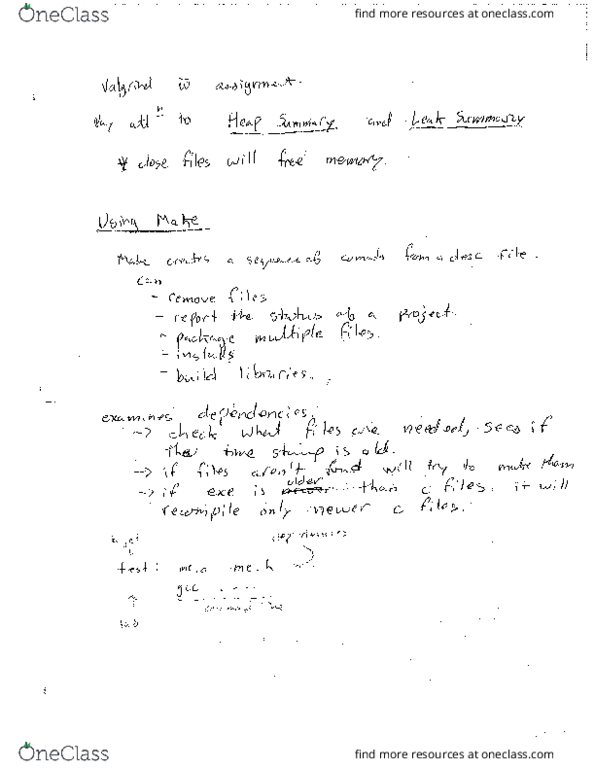 OneClass
find more resources at oneclass.com
Valgrind w assignment.
Pay attn to Heap Summary and Leak Summary
* close files will free memory.
Using Make
Make creates a sequence of commands from a desc file.
can
- remove files
- report the status of a project.
- package multiple files.
- installs
- build libraries.
examines dependencies.
-> check what files are needed, sees if
the time stamp is old.
-> if files aren't found will try to make them
-> if exe is older than c files. it will
recompile only newer c files.
target
dependencies
test: me.h
gcc ....
command line
tab
OneClass
find more resources at oneclass.com